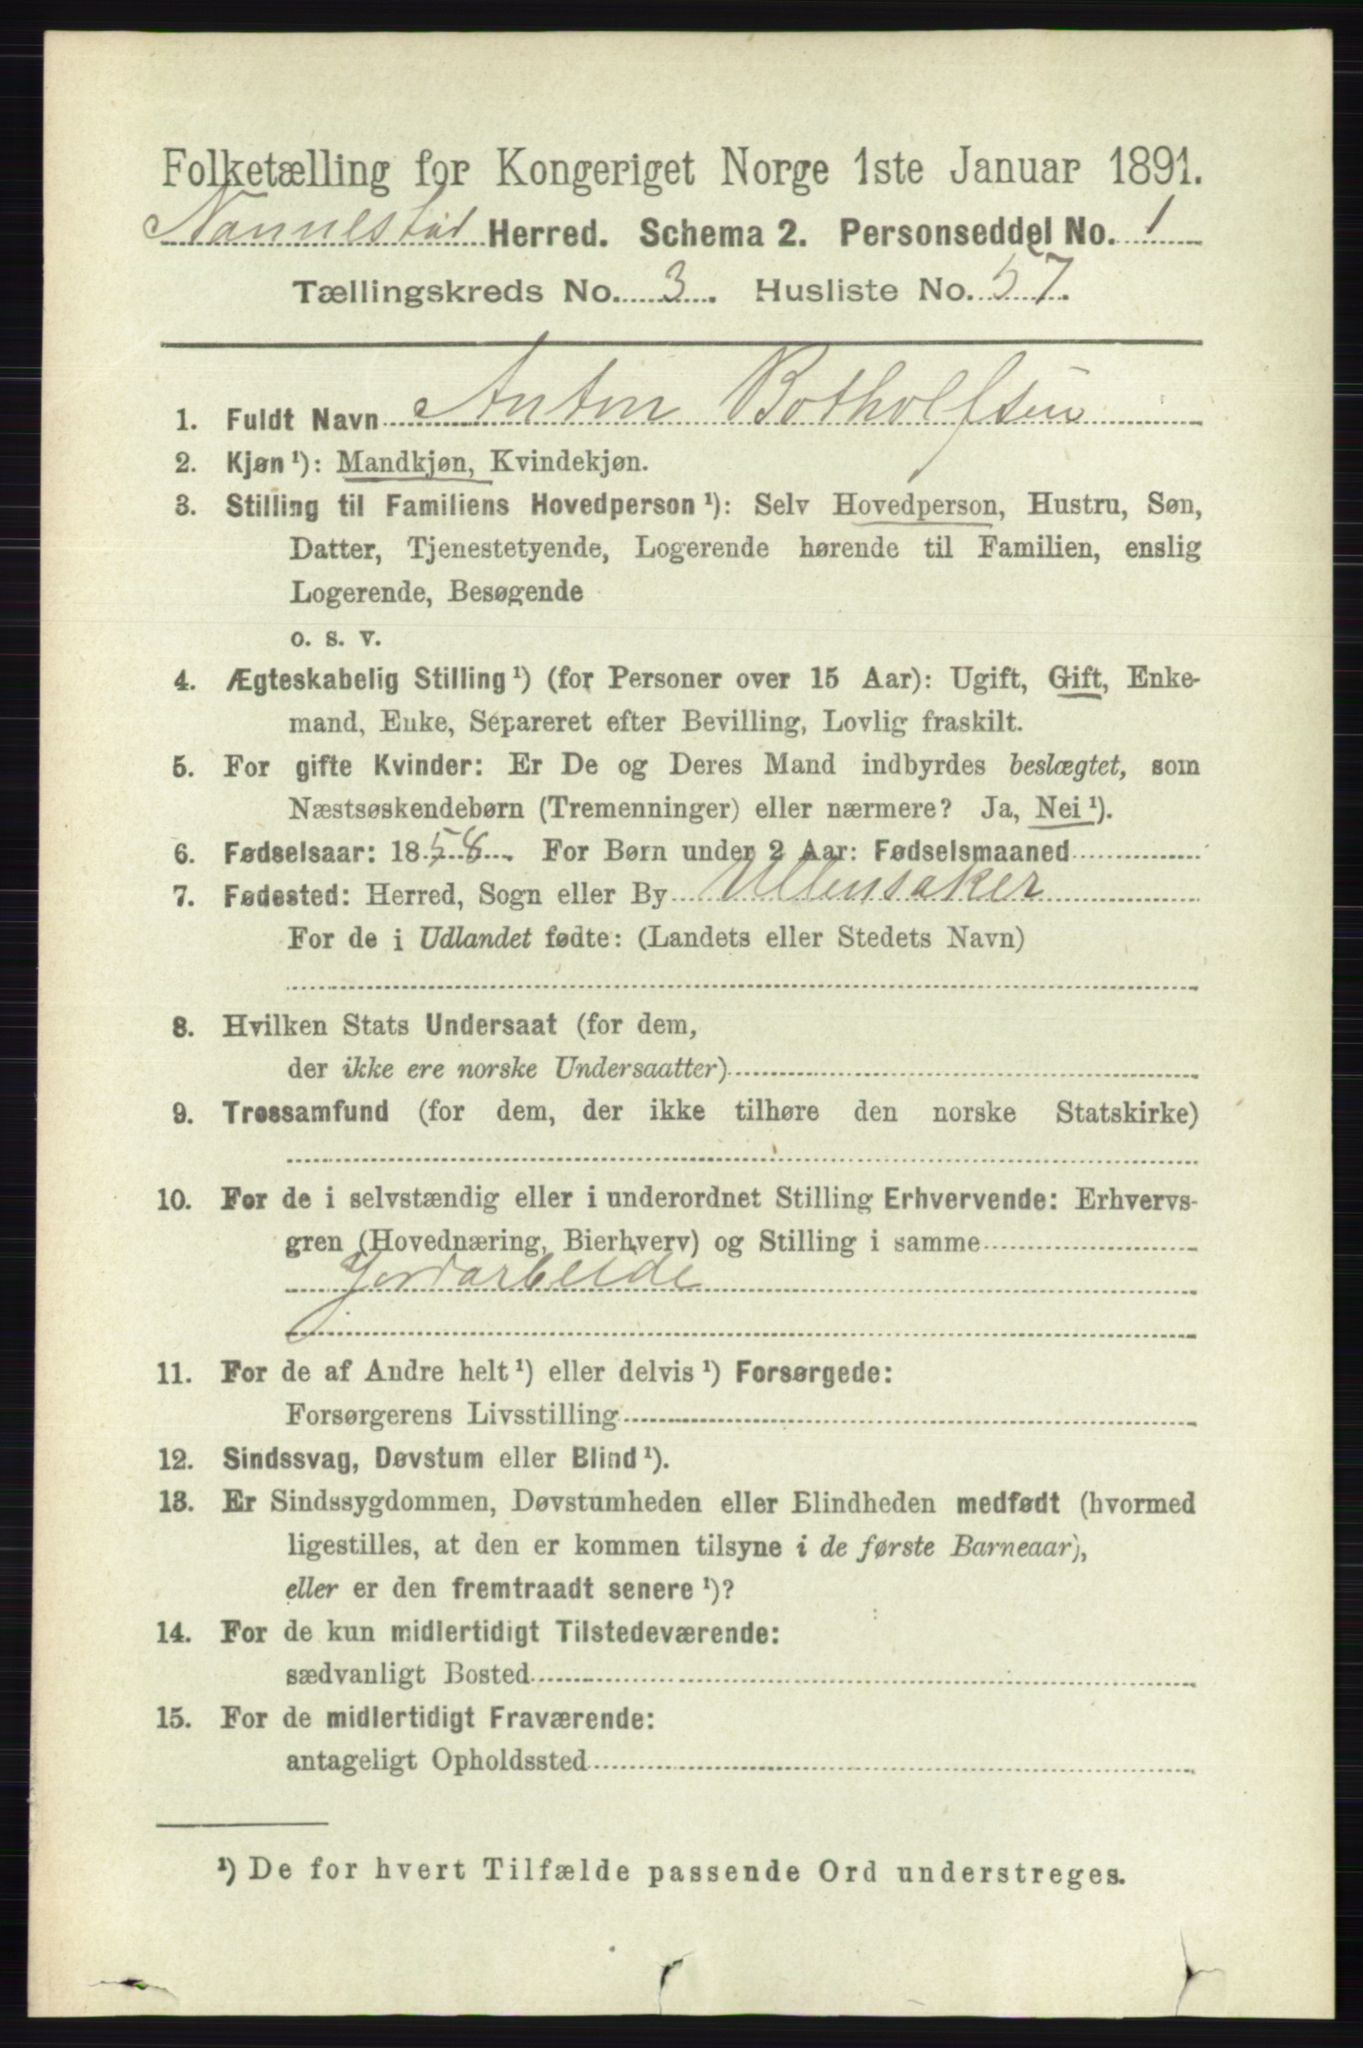 Folketælling for Kongeriget Norge 1ste Januar 1891.
Nannestad Herred. Schema 2. Personseddel No. 1
Tællingskreds No. 3. Husliste No. 57.
1. Fuldt Navn Anton Botholfsen
2. Kjøn ¹): Mandkjøn, Kvindekjøn.
3. Stilling til Familiens Hovedperson ¹): Selv Hovedperson, Hustru, Søn,
Datter, Tjenestetyende, Logerende hørende til Familien, enslig
Logerende, Besøgende
o. s. v.
4. Ægteskabelig Stilling ¹) (for Personer over 15 Aar): Ugift, Gift, Enke-
mand, Enke, Separeret efter Bevilling, Lovlig fraskilt.
5. For gifte Kvinder: Er De og Deres Mand indbyrdes beslægtet, som
Næstsøskendebørn (Tremenninger) eller nærmere? Ja, Nei ¹).
6. Fødselsaar: 1858. For Børn under 2 Aar: Fødselsmaaned
7. Fødested: Herred, Sogn eller By Ullensaker
For de i Udlandet fødte: (Landets eller Stedets Navn)
8. Hvilken Stats Undersaat (for dem,
der ikke ere norske Undersaatter)
9. Trossamfund (for dem, der ikke tilhøre den norske Statskirke)
10. For de i selvstændig eller i underordnet Stilling Erhvervende: Erhvervs-
gren (Hovednæring, Bierhverv) og Stilling i samme
Jordarbeide
11. For de af Andre helt ¹) eller delvis ¹) Forsørgede:
Forsørgerens Livsstilling
12. Sindssvag, Døvstum eller Blind ¹).
13. Er Sindssygdommen, Døvstumheden eller Blindheden medfødt (hvormed
ligestilles, at den er kommen tilsyne i de første Barneaar),
eller er den fremtraadt senere ¹)?
14. For de kun midlertidigt Tilstedeværende:
sædvanligt Bosted
15. For de midlertidigt Fraværende:
antageligt Opholdssted
¹) De for hvert Tilfælde passende Ord understreges.